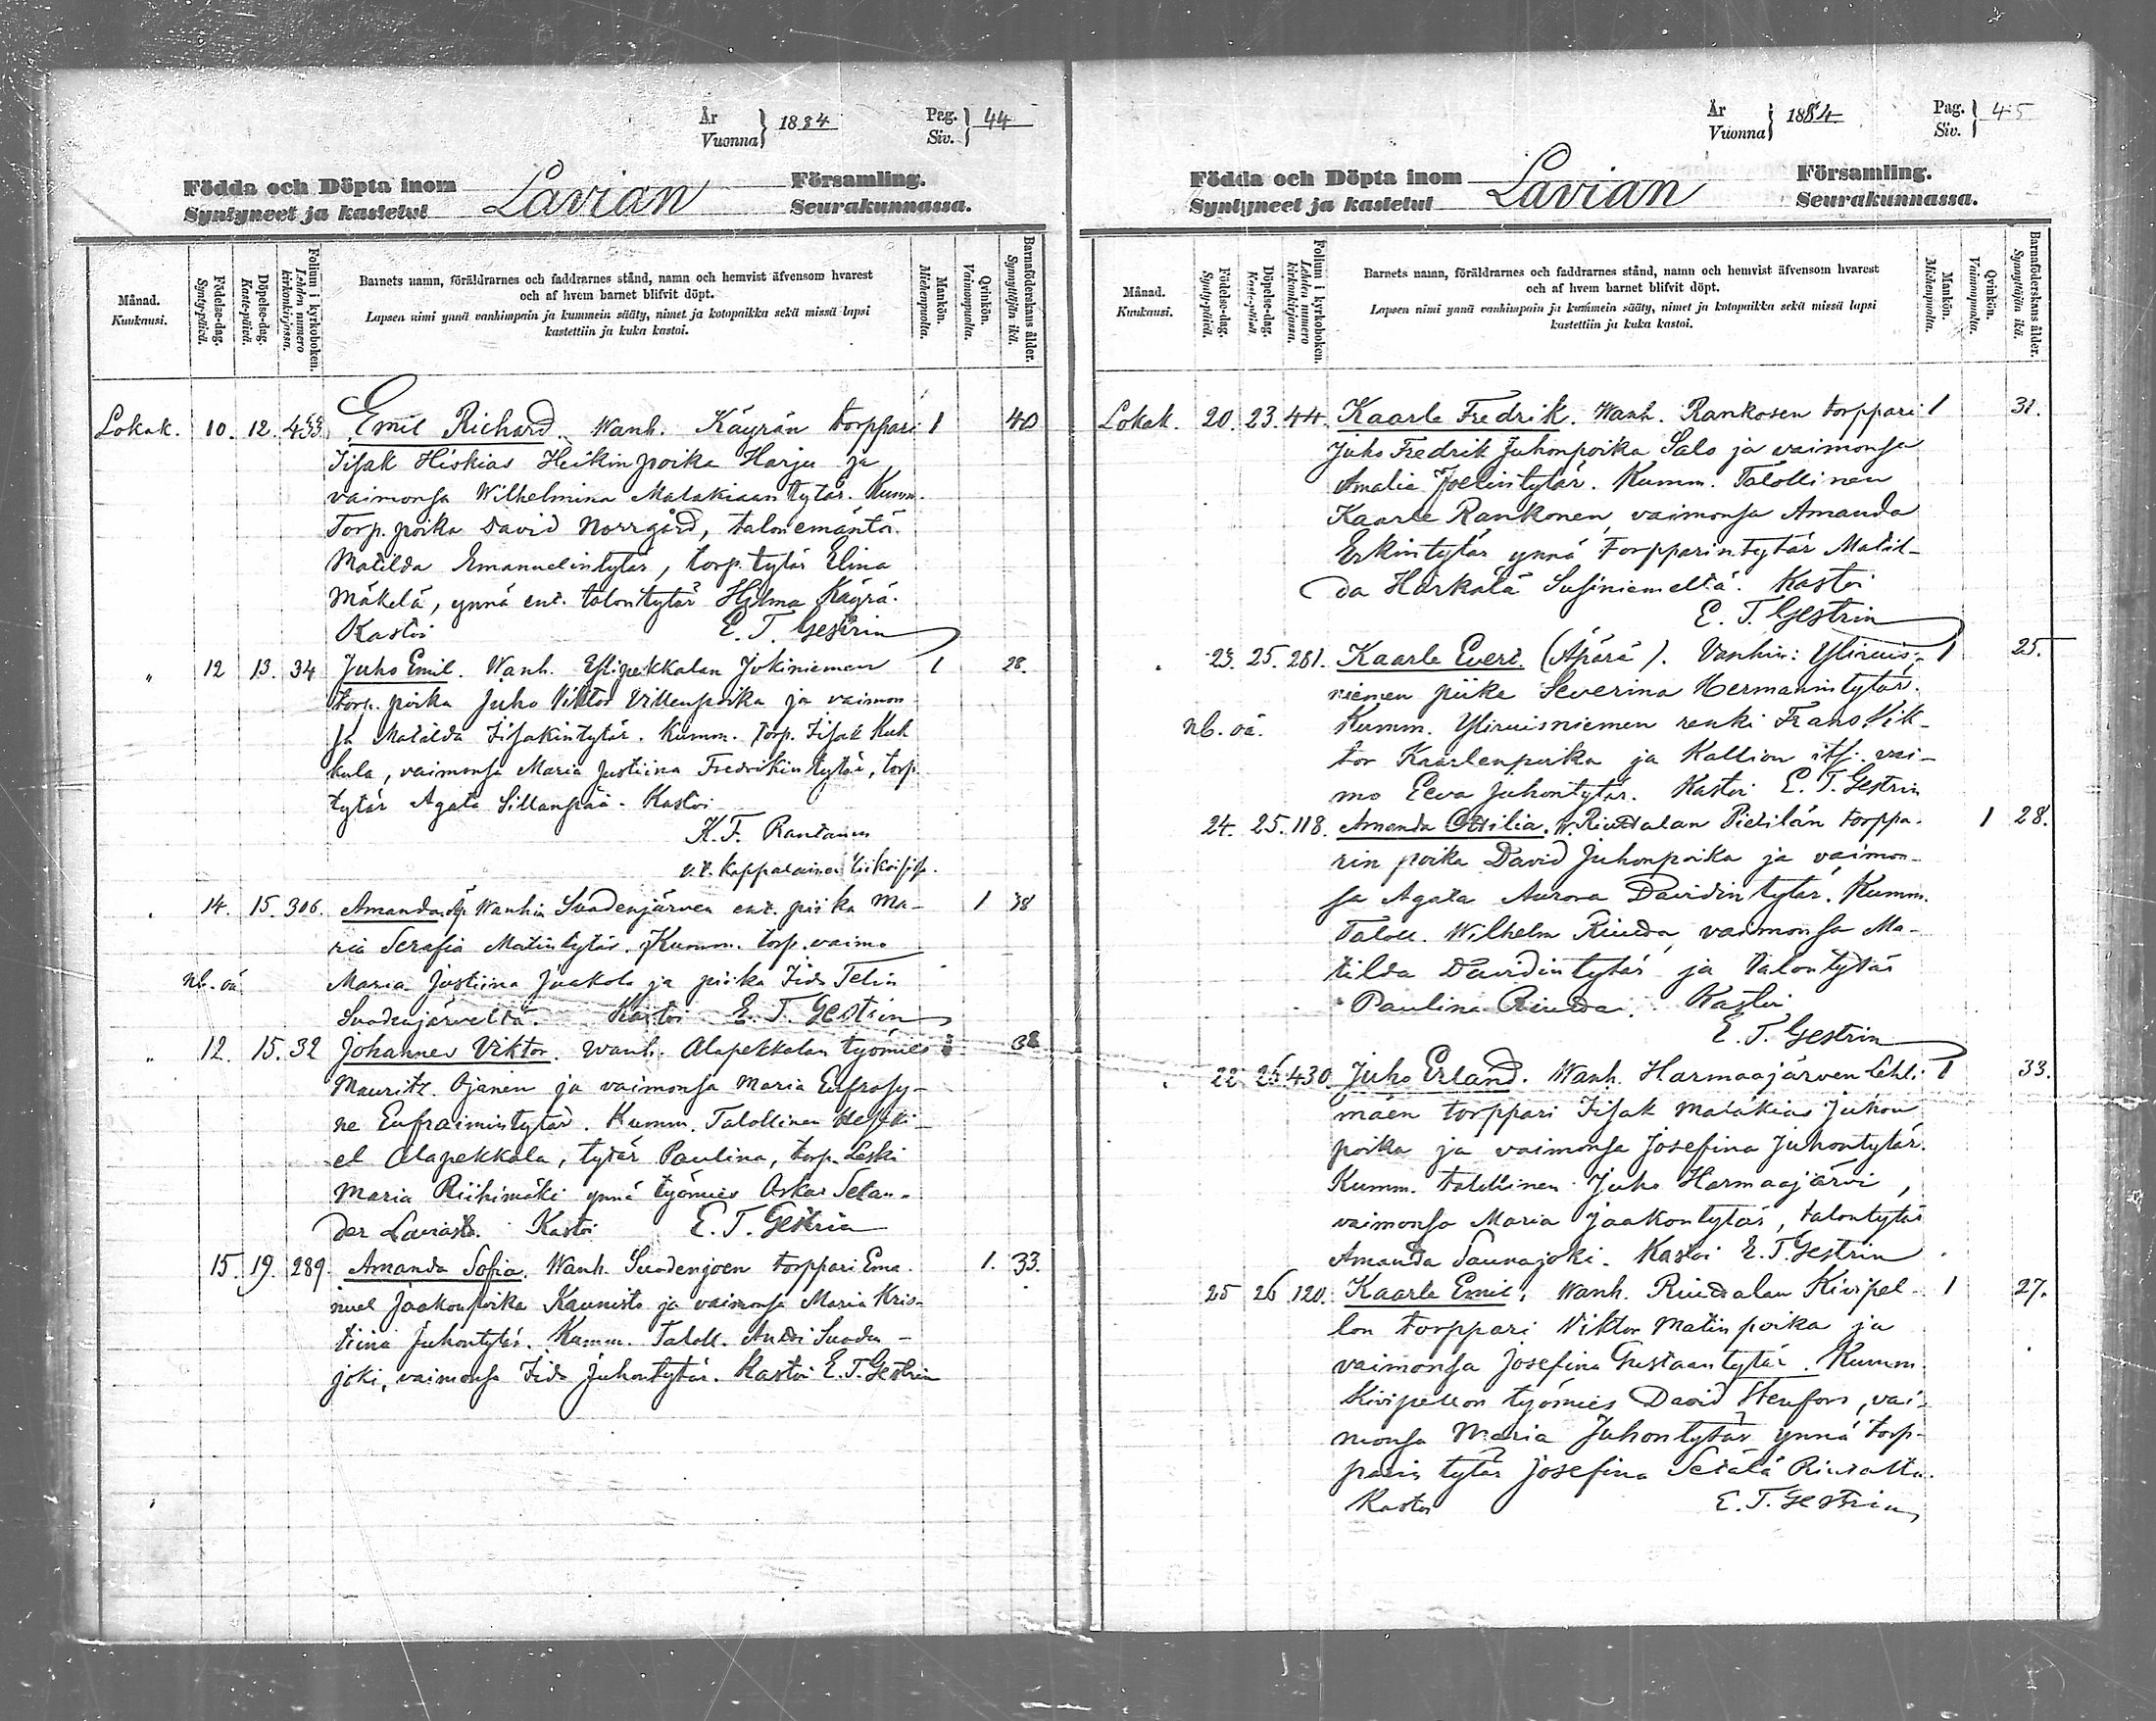 År
Vuonna } 1884
Pag.
Siv. } 44
Födda och Döpta inom Lavian Församling.
Syntyneet ja kastetut Seurakunnassa.
Månad.
Kuukausi.
Födelse-dag.
Synty-päivä.
Döpelse-dag.
Kaste-päivä.
Folium i kyrkoboken.
Lehden numero kirkonkirjassa.
Barnets namn, föräldrarnes och faddrarnes stånd, namn och hemvist äfvensom hvarest
och af hvem barnet blifvit döpt.
Lapsen nimi ynnä vanhimpain ja kummein sääty, nimet ja kotopaikka sekä missä lapsi
kastettiin ja kuka kastoi.
Mankön.
Miehenpuolta.
Qvinkön.
Vaimonpuolta.
Barnaföderskans ålder.
Synnyttäjän ikä.
Lokak. 10. 12. 433. Emil Richard. Wanh. Käyrän torppari 1 40
Iisak Hiskias Heikinpoika Harju ja
vaimonsa Wilhelmina Malakiaantytär. Kumm.
Torp. poika David Norrgård, talonemäntä
Matilda Emanuelintytär, torp. tytär Elina
Mäkelä, ynnä ent. talontytär Hilma Käyrä.
Kastoi E. T. Gestrin
" 12 13. 34 Juho Emil. Wanh. Ylipekkalan Jokiniemen 1 28.
torp. poika Juho Viktor Villenpoika ja vaimon
sa Matilda Iisakintytär. Kumm. torp. Iisak Kuk
kula, vaimonsa Maria Justiina Fredrikintytär, torp.
tytär Agata Sillanpää. Kastoi
K. F. Rantanen
v.t. kappalainen
14. 15. 306. Amanda Äp. Wanhin Suodenjärven ent. piika Ma- 1 38
ria Serafia Matintytär. Kumm. torp. vaimo
nb. oä Maria Justiina Jaakola ja piika Iida Telin
Suodenjärveltä. Kastoi E. T. Gestrin
" 12. 15. 32 Johannes Viktor. Wanh. Alapekkalan työmies 1 38
Maurits Ojanen ja vaimonsa Maria Eufrosy-
ne Eufraimintytär. Kumm. Talollinen Heseki-
el Alapekkala, tytär Paulina, torp. Leski
Maria Riihimäki ynnä työmies Oskar Selan-
der Laviasta. Kastoi E. T. Gestrin
15. 19. 289. Amanda Sofia. Wanh. Suodenjoen torppari Ema- 1. 33.
nuel Jaakonpoika Kaunisto ja vaimonsa Maria Kris-
tiina Juhontytär. Kumm. Taloll. Antti Suoden-
joki, vaimonsa Iida Juhontytär. Kastoi E. T. Gestrin
År
Vuonna } 1884
Pag.
Siv. } 45
Födda och Döpta inom Lavian Församling.
Syntyneet ja kastetut Seurakunnassa.
Månad.
Kuukausi.
Födelse-dag.
Synty-päivä.
Döpelse-dag.
Kaste-päivä.
Folium i kyrkoboken.
Lehden numero kirkonkirjassa.
Barnets namn, föräldrarnes och faddrarnes stånd, namn och hemvist äfvensom hvarest
och af hvem barnet blifvit döpt.
Lapsen nimi ynnä vanhimpain ja kummein sääty, nimet ja kotopaikka sekä missä lapsi
kastettiin ja kuka kastoi.
Mankön.
Miehenpuolta.
Qvinkön.
Vaimonpuolta.
Barnaföderskans ålder.
Synnyttäjän ikä.
Lokak. 20. 23. 44. Kaarle Fredrik. Wanh. Rankosen torppari 1 31.
Juho Fredrik Juhonpoika Salo ja vaimonsa
Amalia Joelintytär. Kumm. Talollinen
Kaarle Rankonen, vaimonsa Amanda
Erkintytär ynnä torpparintytär Matil-
da Harkala Susiniemeltä. Kastoi
E. T. Gestrin
23. 25. 281. Kaarle Evert. (Äpärä). Vanhin: Yliruis- 1 25.
niemen piika Severina Hermannintytär.
nb. oä. Kumm. Yliruisniemen renki Frans Vik-
tor Kaarlenpoika ja Kallion its. vai-
mo Eeva Juhontytär. Kastoi E. T. Gestrin
24. 25. 118. Amanda Otilia. W. Riuttalan Pietilän torppa- 1 28.
rin poika David Juhonpoika ja vaimon-
sa Agata Aurora Davidintytär. Kumm.
Taloll. Wilhelm Riutta, vaimonsa Ma-
tilda Davidintytär ja talontytär
Paulina Riutta. Kastoi
E. T. Gestrin
22 26 430. Juho Erland. Wanh. Harmaajärven Lehti- 1 33.
mäen torppari Iisak Malakias Juhon
poika ja vaimonsa Josefina Juhontytär.
Kumm. talollinen Juho Harmaajärvi,
vaimonsa Maria Jaakontytär, talontytär
Amanda Saunajoki. Kastoi E. T. Gestrin
25 26 120. Kaarle Emil. Wanh. Riuttalan Kivipel- 1 27.
lon torppari Viktor Matinpoika ja
vaimonsa Josefina Gustaantytär. Kumm.
Kivipellon työmies David Stenfors, vai-
monsa Maria Juhontytär ynnä torp-
parin tytär Josefina Setälä Riutalta.
Kastoi E. T. Gestrin